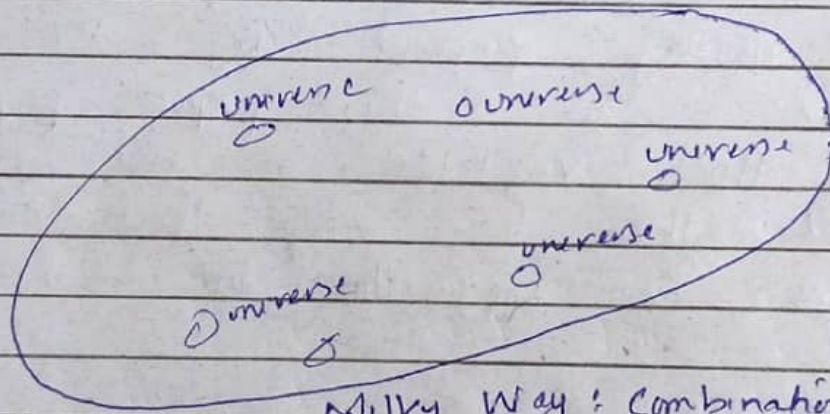 universe
universe
universe
universe
universe
Milky Way : Combinatio